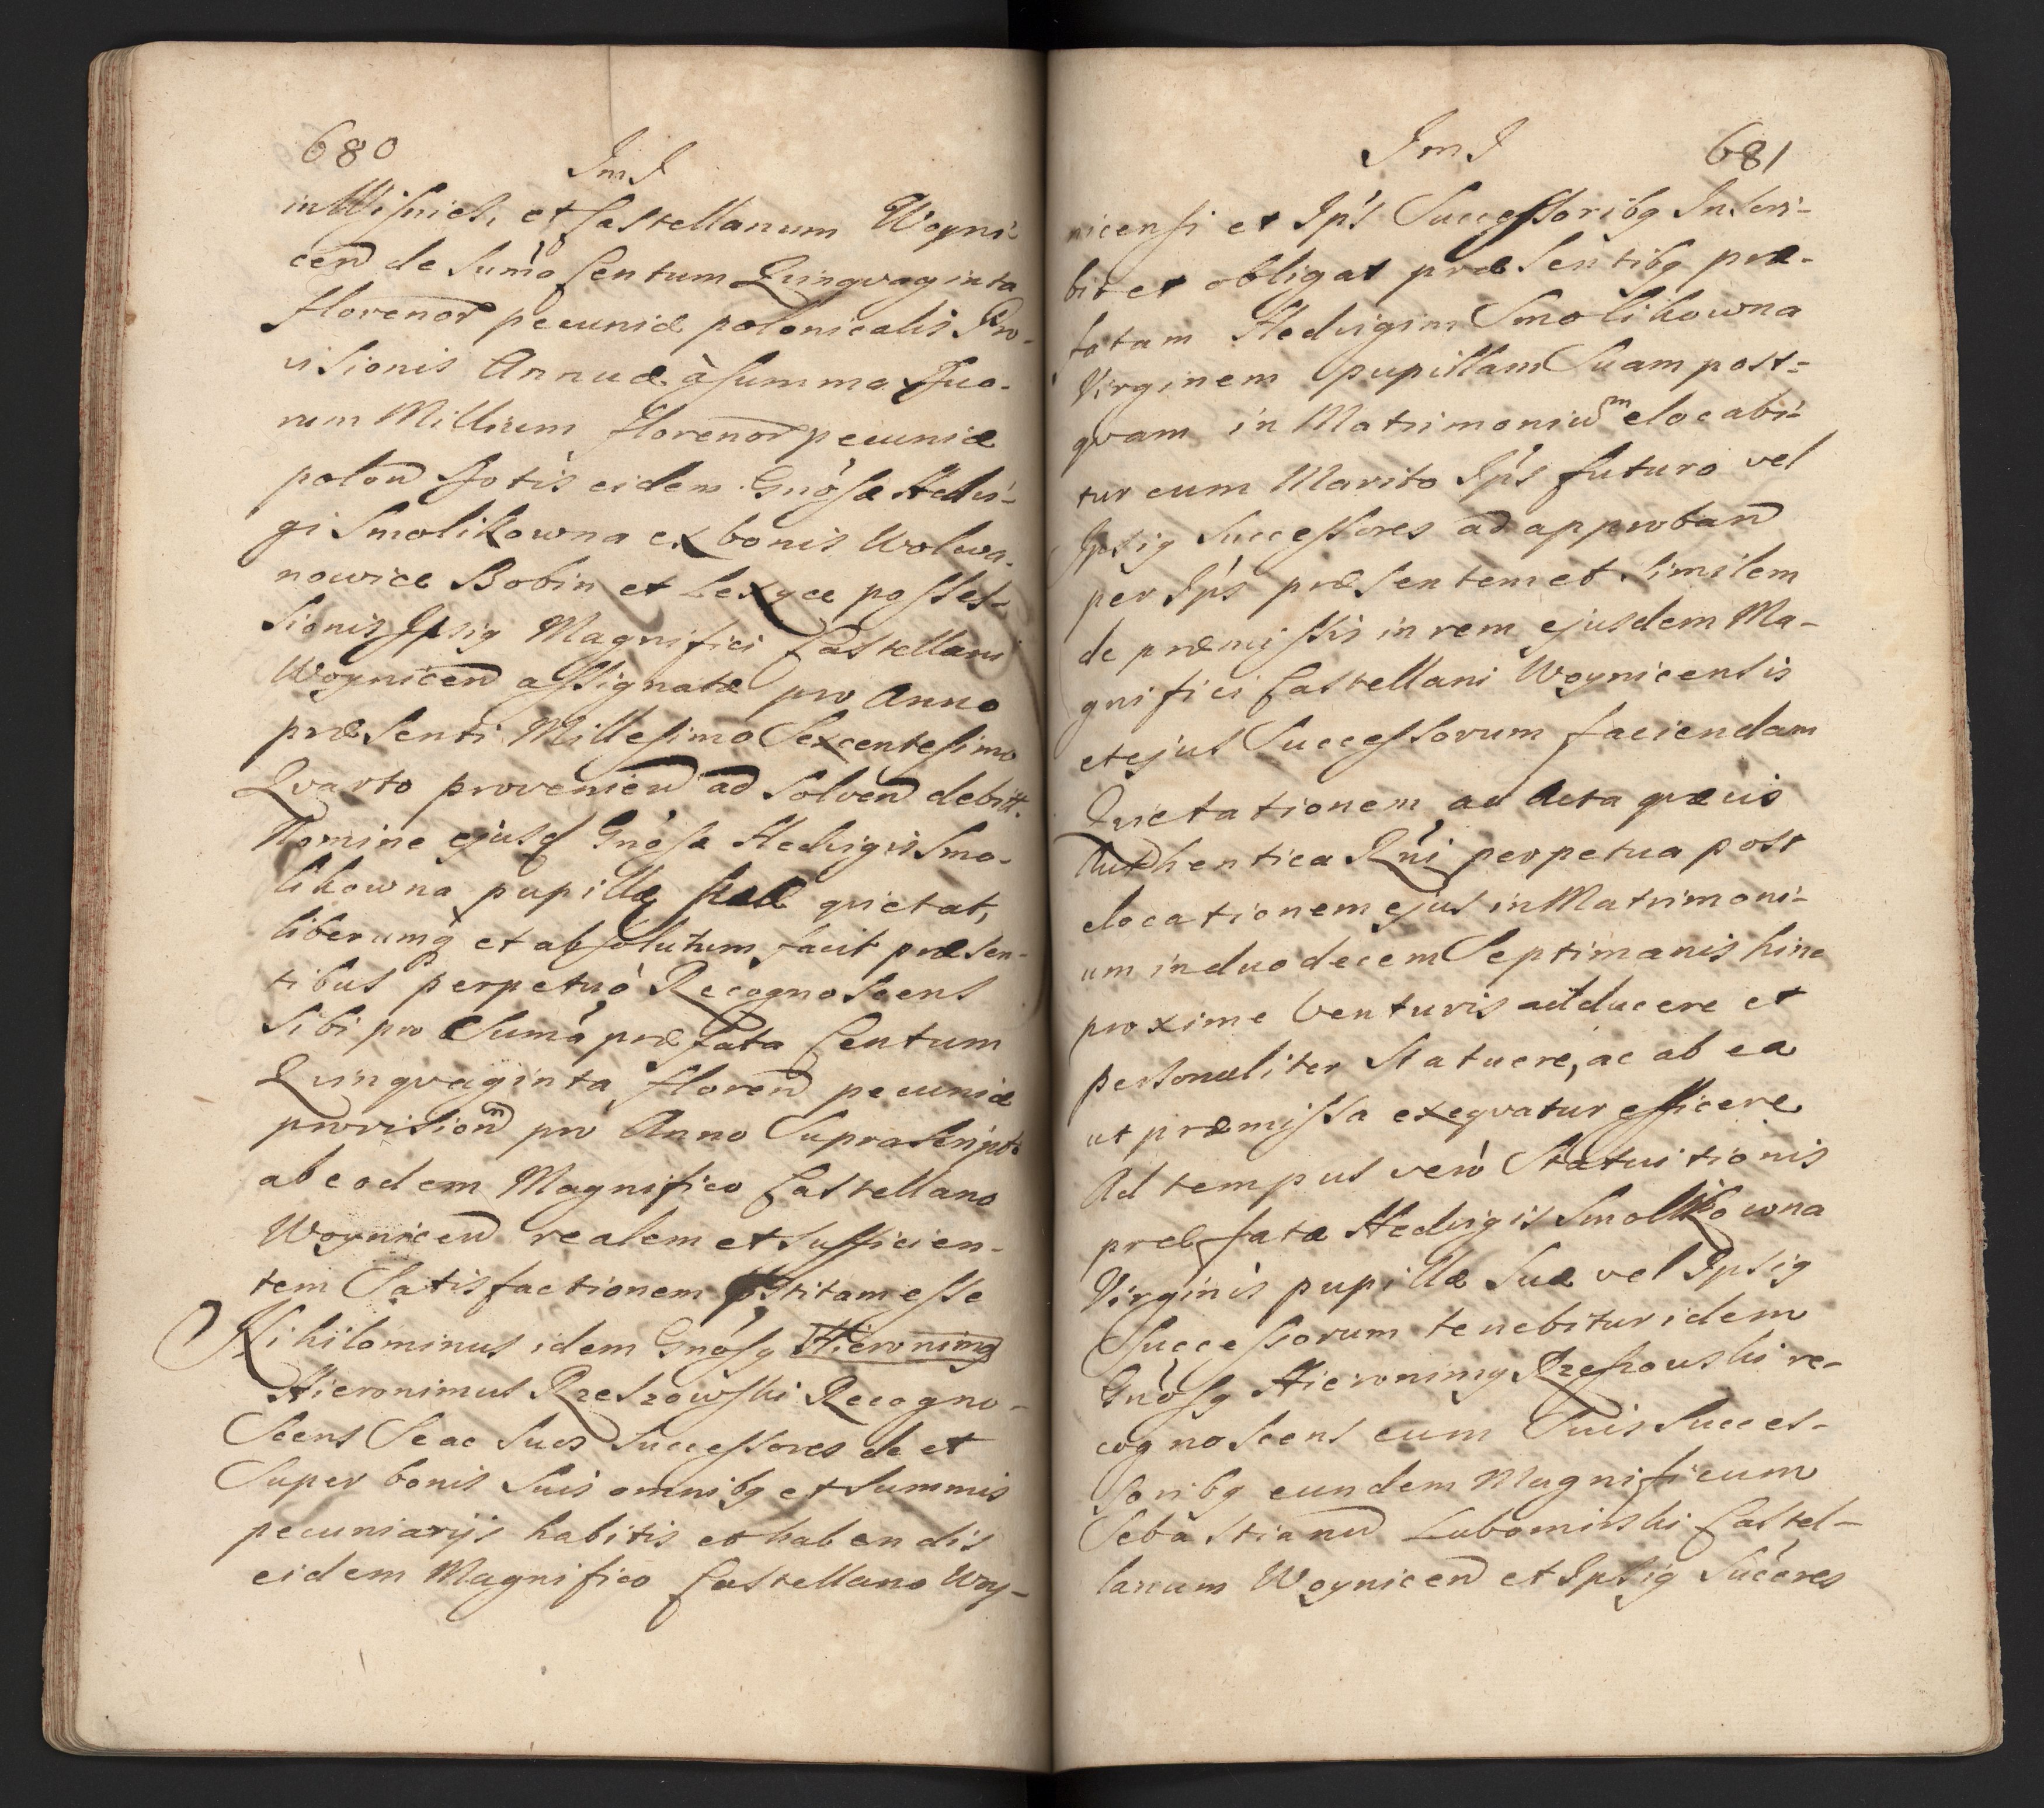 680
JmJ
in Wiſnicz, et Castellanum Woyni-
cen̄ de Sum̄a Centum Qvinqvaginta
florenor̄ pecuniæ polonicalis Pro-
visionis Annuæ à ſumma Duo-
rum Millium florenor̄ pecuniæ
polon̄ totis eidem Gnoſæ Hedvi-
gi Smolikowna ex bonis Wolwa-
nowice Bobin et Lexyce poſſes-
sionis Ipsiꝯ Magnifici Castellani
Woynicen̄ aſſignatæ pro Anno
præsenti Milleſimo Sexcenteſimo
Qvarto provenien̄ ad Solven̄ debitt.
Nomine ejusd Gnoſæ Hedvigis Smo-
likowna pupillæ suæ qvietat,
liberumq̃ et abſolutum facit præsen-
tibus perpetuò Recognoscens
Sibi pro Sum̄a præfata Centum
Qvinqvaginta floren̄ pecuniæ
provision̄ pro Anno Suprascripto
ab eodem Magnifico Castellano
Woynicen̄ realem et Sufficien-
tem Satisfactionem p̃stitam eſſe
Nihilominus idem Gnoſꝯ Hieronimꝯ
Hieronimus Rzeszowſki Recogno-
Scens Se ac Suos Succeſſores de et
Super bonis Suis omnibꝯ et Summis
pecuniarijs habitis et habendis
eidem Magnifico Castellano Woy-
JmJ
681
nicenſi et Ip̄s Succeſſoribꝯ Inscri-
bit et obligat præSentibꝯ præ-
fatam Hedvigim Smolikowna
Virginem pupillam Suam post-
qvam in Matrimoniūm elocabi-
tur cum Marito Ip̄s futuro vel
Ipsiꝯ Succeſſores ad approban̄
per Ip̄s præSentem et Similem
de præmiſſis in rem ejusdem Ma-
gnifici Castellani Woynicensis
et ejus Succeſſorum faciendam
Qvietationem ad Acta qvævis
Authentica R̄ni perpetua post
elocationem ejus in Matrimoni-
um in duodecem Septimanis hinc
proxime Venturis adducere et
personaliter Statuere, ac ab ea
ut præmiſſa exeqvatur efficere
Ad tempus verò Statuitionis
præfatæ Hedvigis Smolikowna
Virginis pupillæ Suæ vel Ipsiꝯ
Succeſſorum tenebitur idem
Gnoſꝯ Hieronimꝯ Rzeſzowski re-
cognoscens cum Suis Succes-
soribꝯ eundem Magnificum
Sebastianū Lubomirski Castel-
lanum Woynicen̄ et Ipsiꝯ Succ̄res